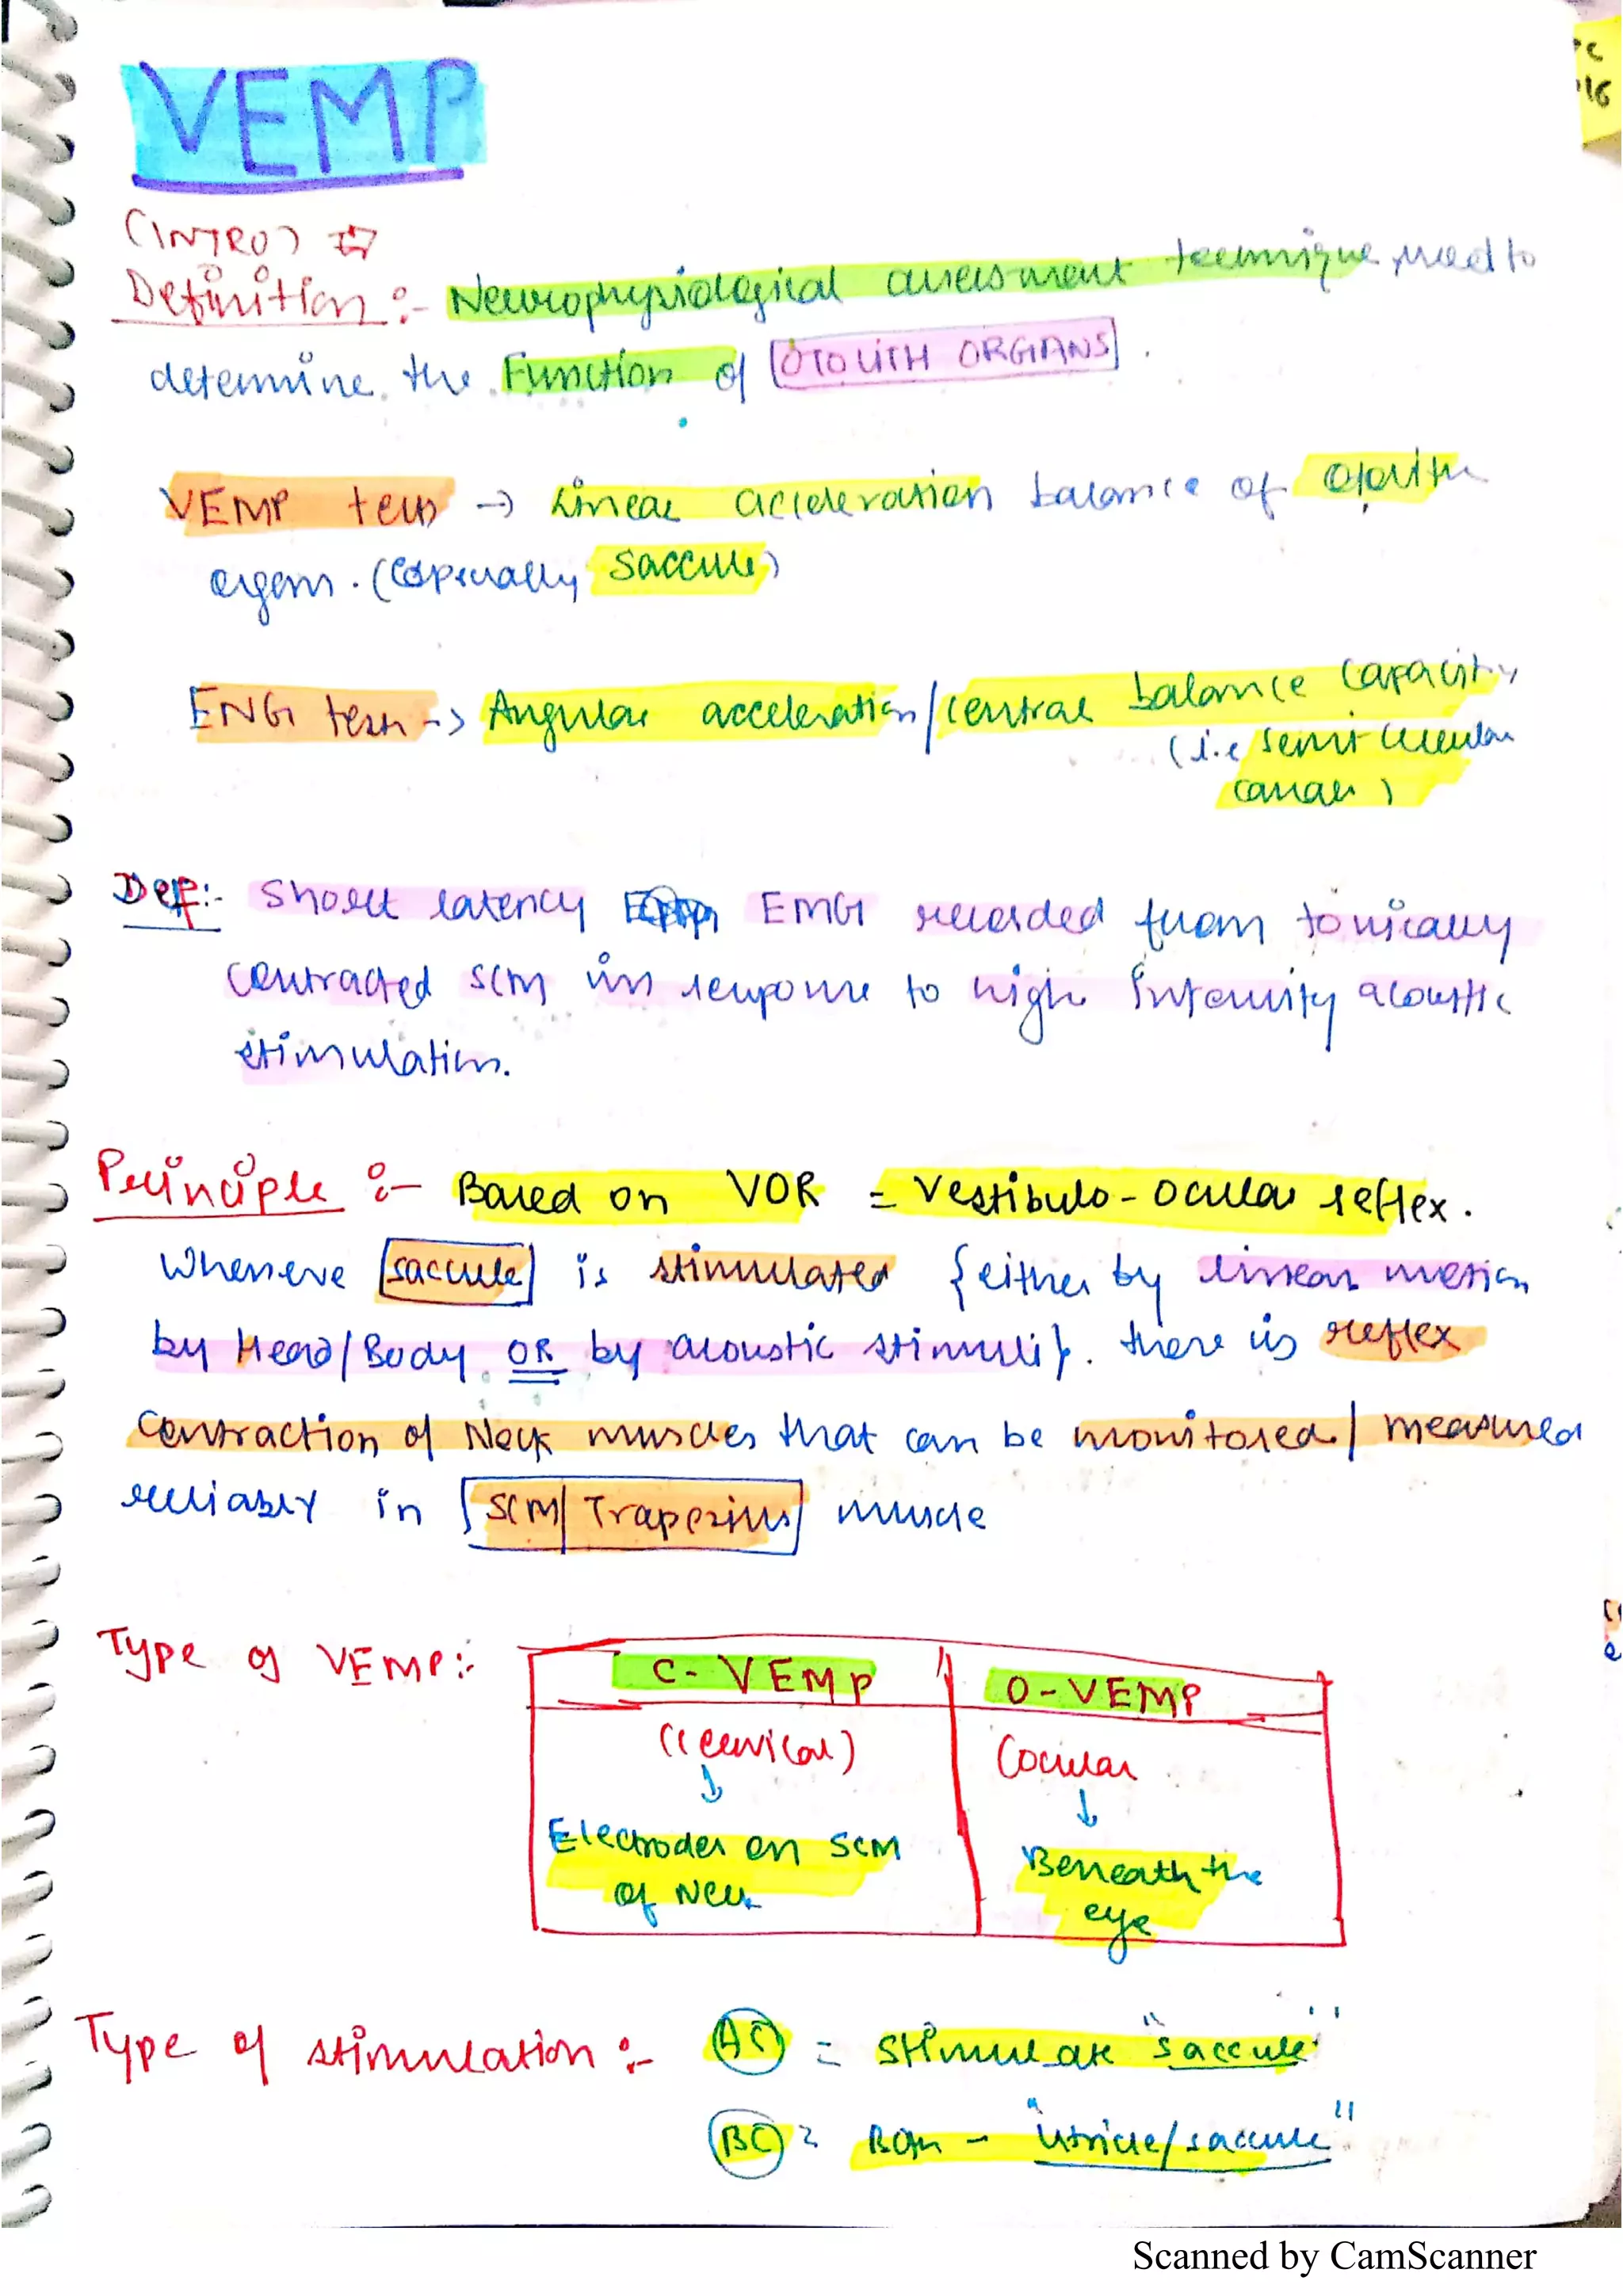 VEMP
(INTRO)
Definition :- Neurophysiological assessment technique used to
determine the Function of OTOLITH ORGANS.
VEMP test → Linear acceleration balance of otolith
organ. (Especially saccule)
ENG test → Angular acceleration/central balance capacity
(i.e semi circular
canals)
Def:- Short latency EMG recorded from tonically
contracted SCM in response to high intensity acoustic
stimulation.
Principle :- Based on VOR = Vestibulo-ocular reflex.
Whenever saccule is stimulated {either by linear motion
by Head/Body OR by acoustic stimuli}. there is reflex
contraction of Neck muscles that can be monitored/measured
reliably in SCM/Trapezius muscle
Type of VEMP:-
C-VEMP O-VEMP
(cervical) (ocular
↓ ↓
Electrodes on SCM Beneath the
of Neck eye
Type of stimulation :- AC = stimulate "saccule"
BC = Both - "utricle/saccule"
Scanned by CamScanner